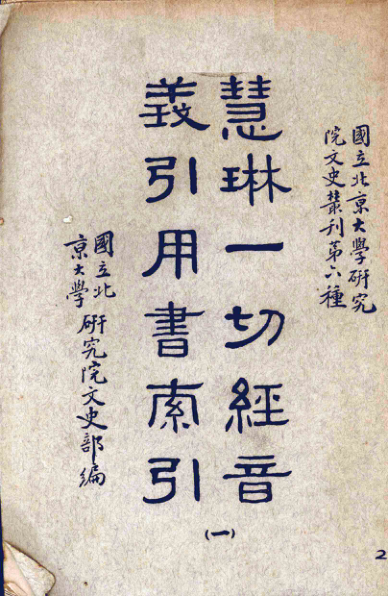 國立北京大學研究
院文史叢刊第六種
慧琳一切經音
義引用書索引
(一)
國立北
京大學
研究院文史部編
2